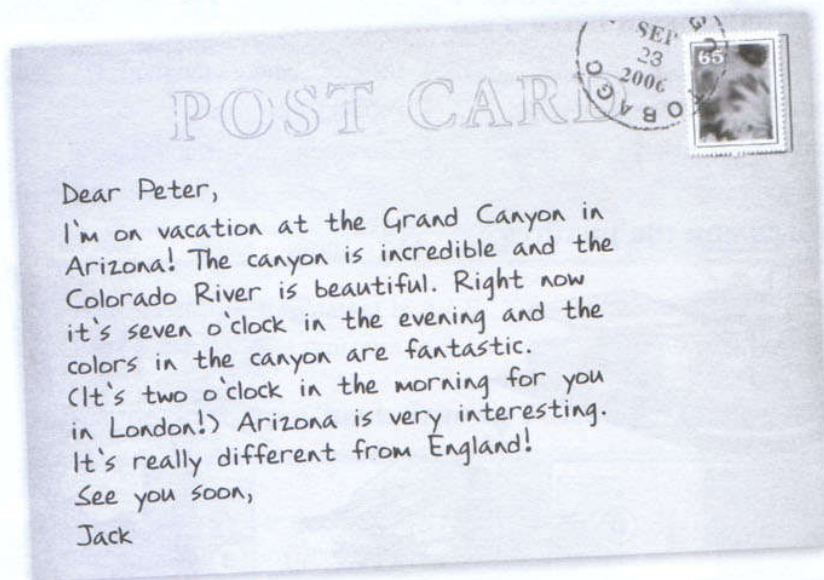 SEP
23
2006
65
POST CARD
Dear Peter,
I'm on vacation at the Grand Canyon in
Arizona! The canyon is incredible and the
Colorado River is beautiful. Right now
it's seven o'clock in the evening and the
colors in the canyon are fantastic.
(It's two o'clock in the morning for you
in London!) Arizona is very interesting.
It's really different from England!
See you soon,
Jack